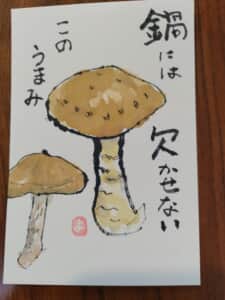 鍋には
欠かせない
この
うまみ